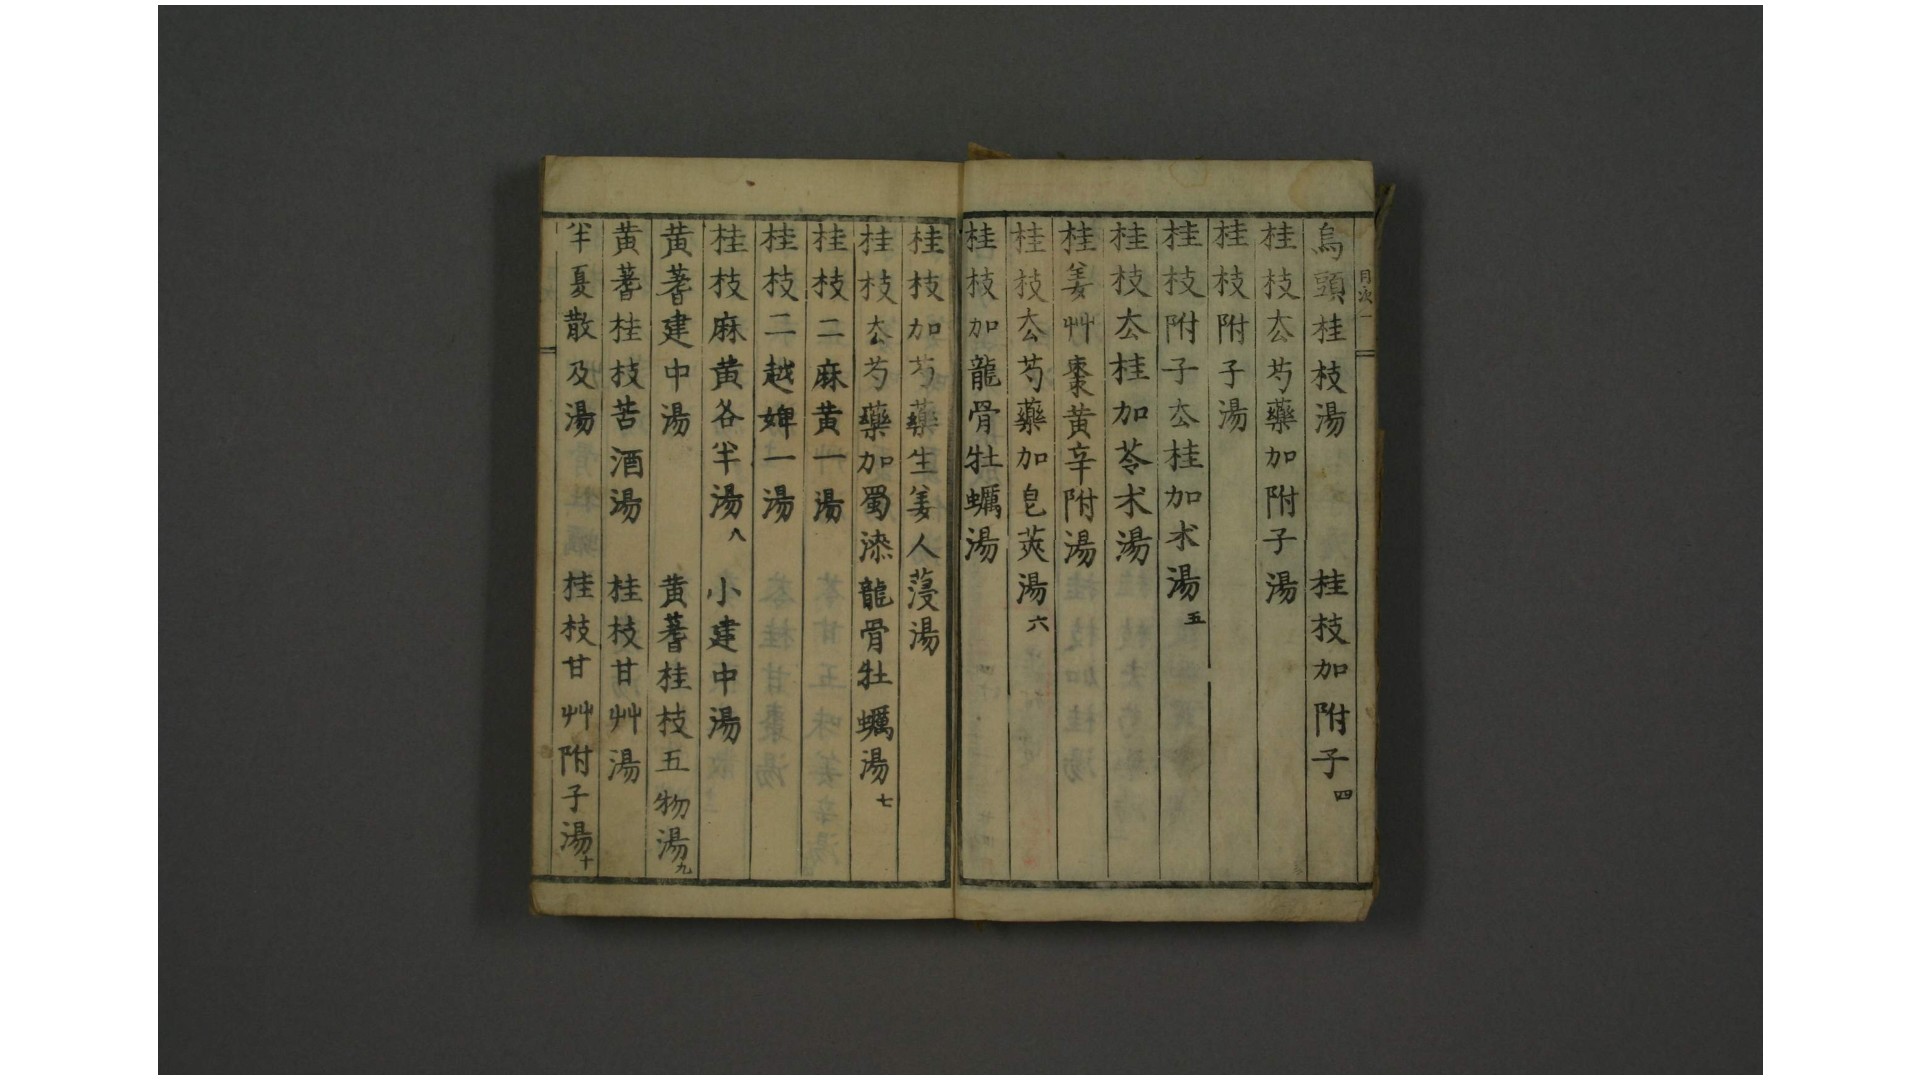 目次一
烏頭桂枝湯 桂枝加附子四
桂枝厺芍藥加附子湯
桂枝附子湯
桂枝附子厺桂加朮湯五
桂枝厺桂加苓朮湯
桂姜艸棗黄辛附湯
桂枝厺芍藥加皂莢湯六
桂枝加龍骨牡蠣湯
桂枝加芍藥生姜人薓湯
桂枝厺芍藥加蜀漆龍骨牡蠣湯七
桂枝二麻黄一湯
桂枝二越婢一湯
桂枝麻黄各半湯八 小建中湯
黄蓍建中湯 黄蓍桂枝五物湯九
黄蓍桂枝苦酒湯 桂枝甘艸湯
半夏散及湯 桂枝甘艸附子湯十